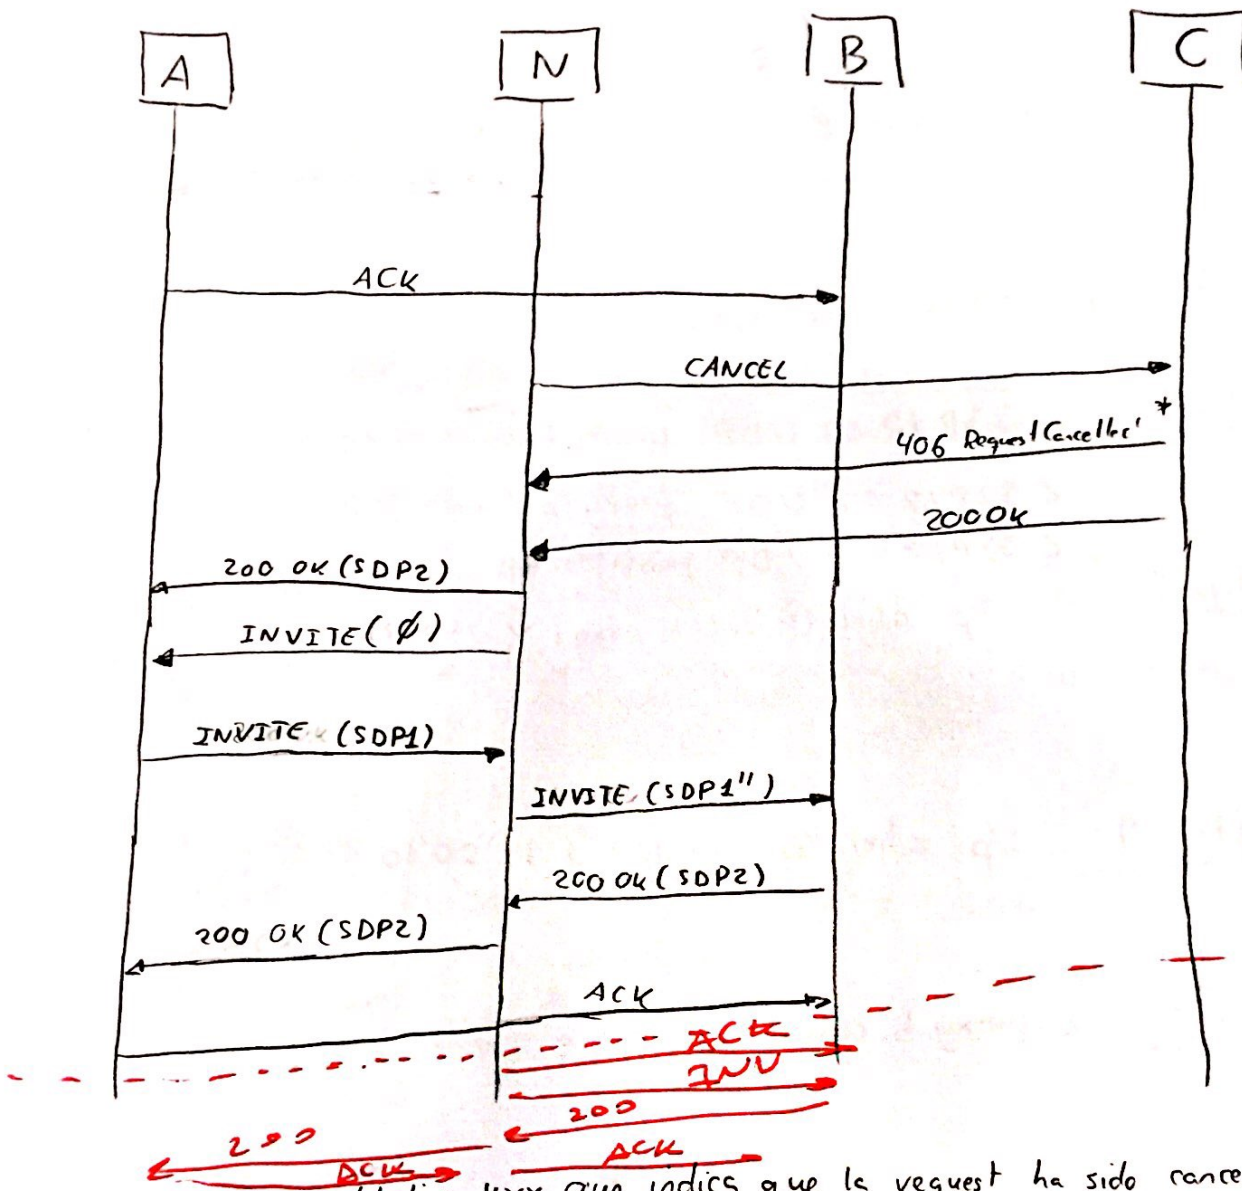 A N B C
ACK
CANCEL
*
406 Request
200 OK
200 OK (SDP2)
INVITE (∅)
INVITE (SDP1)
INVITE (SDP1")
200 OK (SDP2)
200 OK (SDP2)
ACK
ACK
INV
200
200
ACK
ACK
que indica que la request ha sido cance